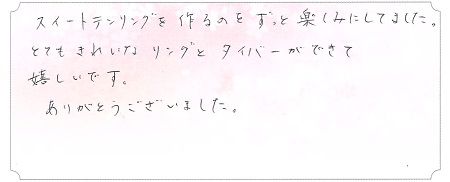 スイートテンリングを作るのをずっと楽しみにしてました。
とてもきれいなリングとタイバーができて
嬉しいです。
ありがとうございました。